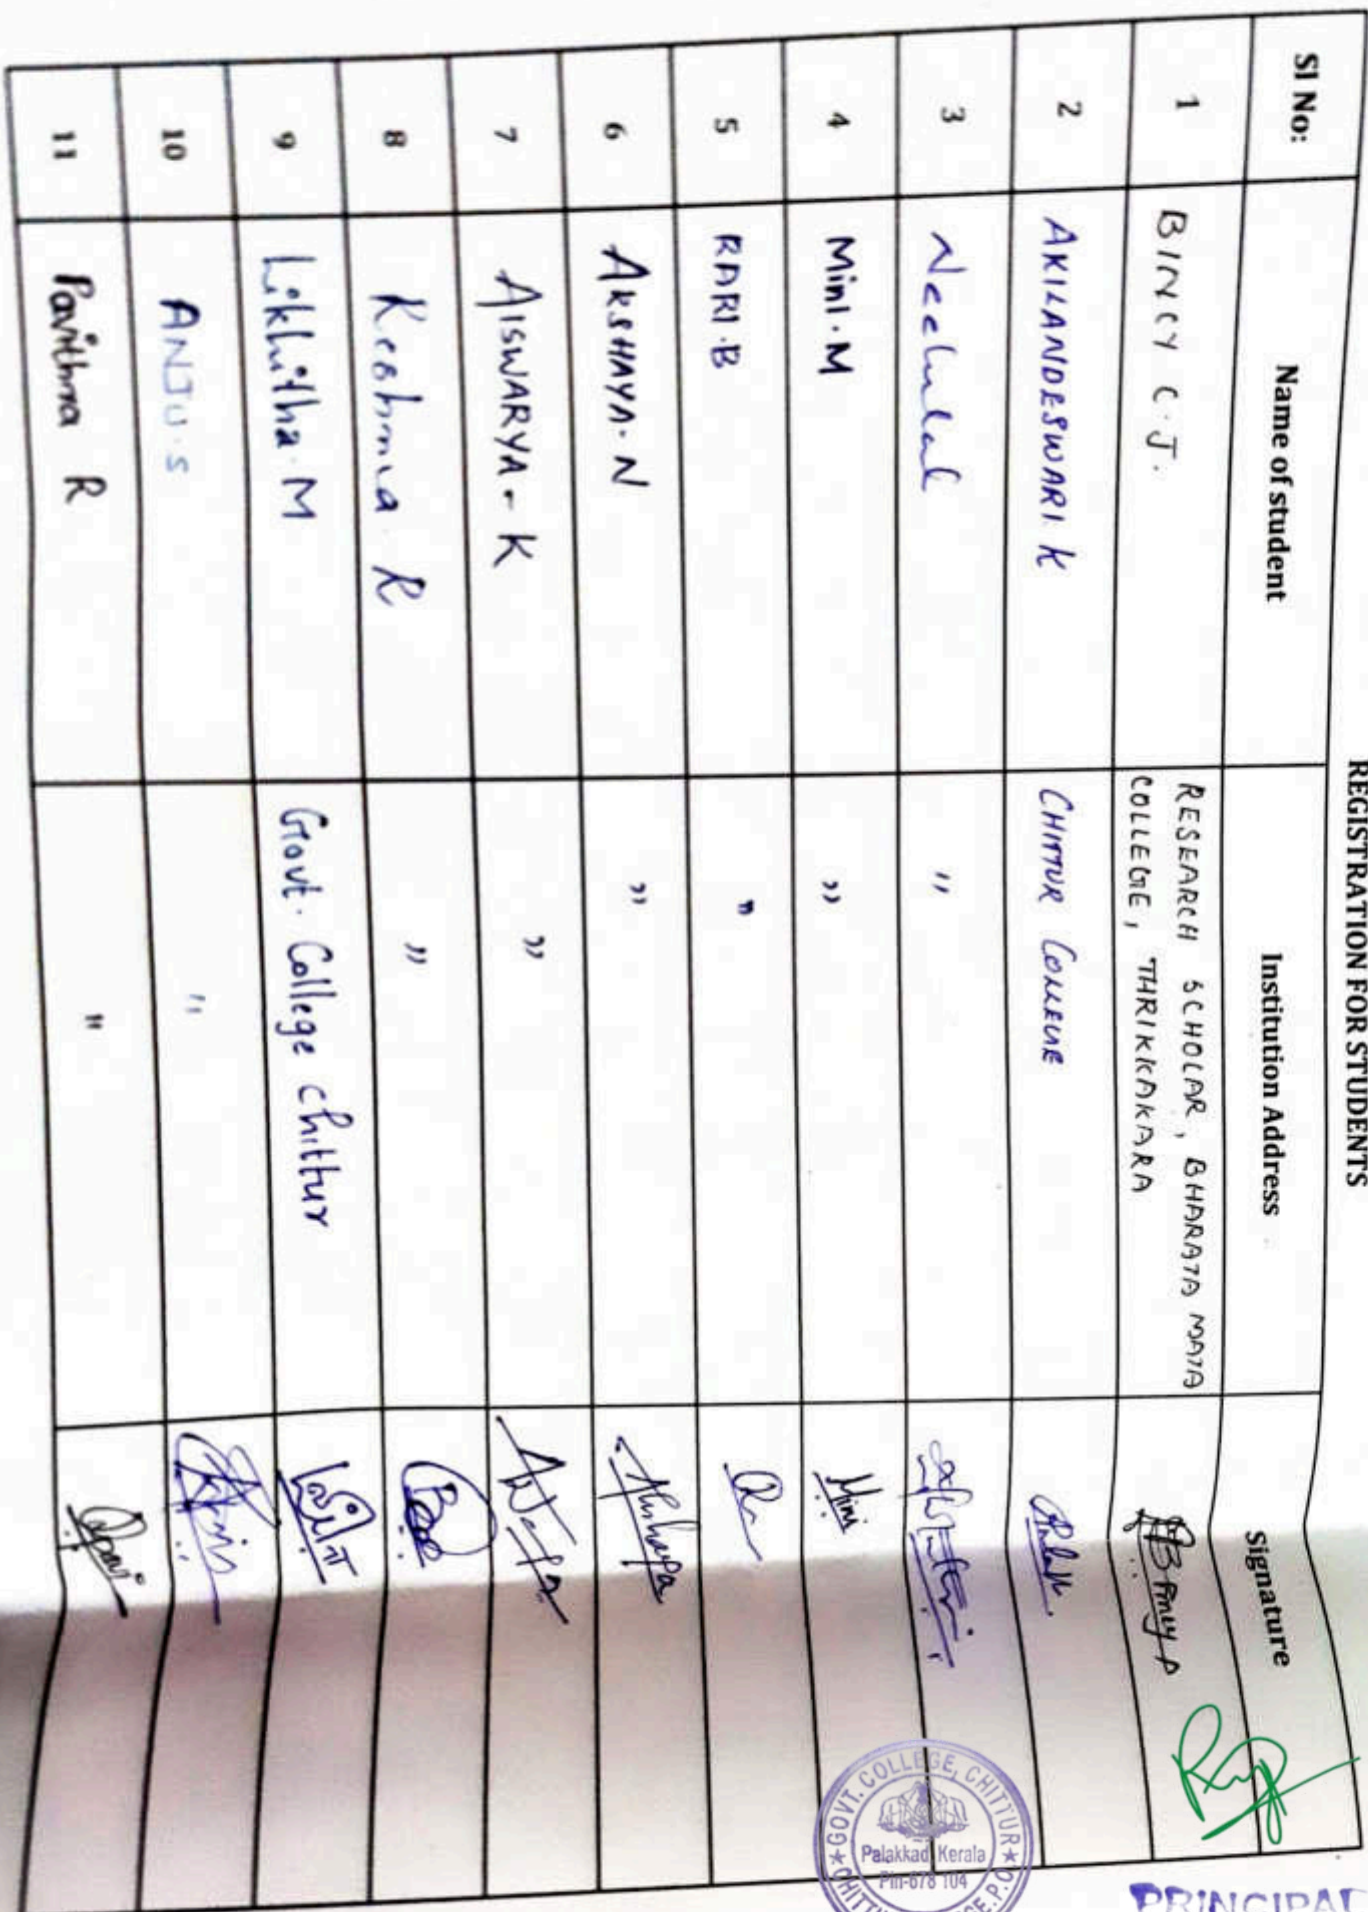 REGISTRATION FOR STUDENTS
Sl No: Name of student Institution Address Signature
1 BINCY C.J. RESEARCH SCHOLAR, BHARATA MATA
COLLEGE, THRIKKAKARA
2 AKILANDESWARI. K CHITTUR COLLEGE
3 Neelulal "
4 Mini.M " Mini
5 RARI.B "
6 AKSHAYA.N " Akshaya
7 AISWARYA-K "
8 Reshma R "
9 Likhitha.M Govt. College chittur
10 ANJU.S "
11 Pavithra R "
GOVT. COLLEGE, CHITTUR
Palakkad Kerala
Pin-678 104
PRINCIPAL